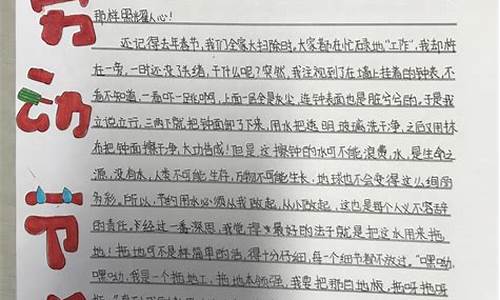 那样照耀人心!
还记得去年春节,我们全家大扫除时,大家都在忙碌地"工作",我却杵
在一旁,一时还没了头绪,干什么呢?突然,我注视到了在墙上挂着的钟表,不
看不知道,一看吓一跳啊,上面一层全是灰尘,连钟表面也是脏兮兮的,于是我
立说立行,三两下就把钟面卸了下来,用水把透明玻璃洗干净,之后又用抹
布把钟面擦干净,大功告成!但是这擦钟的水可不能浪费,水,是生命之
源,没有水,人类不可能生存,万物不可能生长,地球也不会变得这么绚丽
多彩,所以,节约用水必须从我做起,从小做起,这也是每个人义不容辞
的责任,经过一番深思,我觉得最好的法子就是把这水用来拖
地!拖地可不是件简单的活,得十分仔细,每一个细节都不放过。"
嘿呦,我是一个拖地工,拖地本领强,我要把那白地板,拖呀拖呀